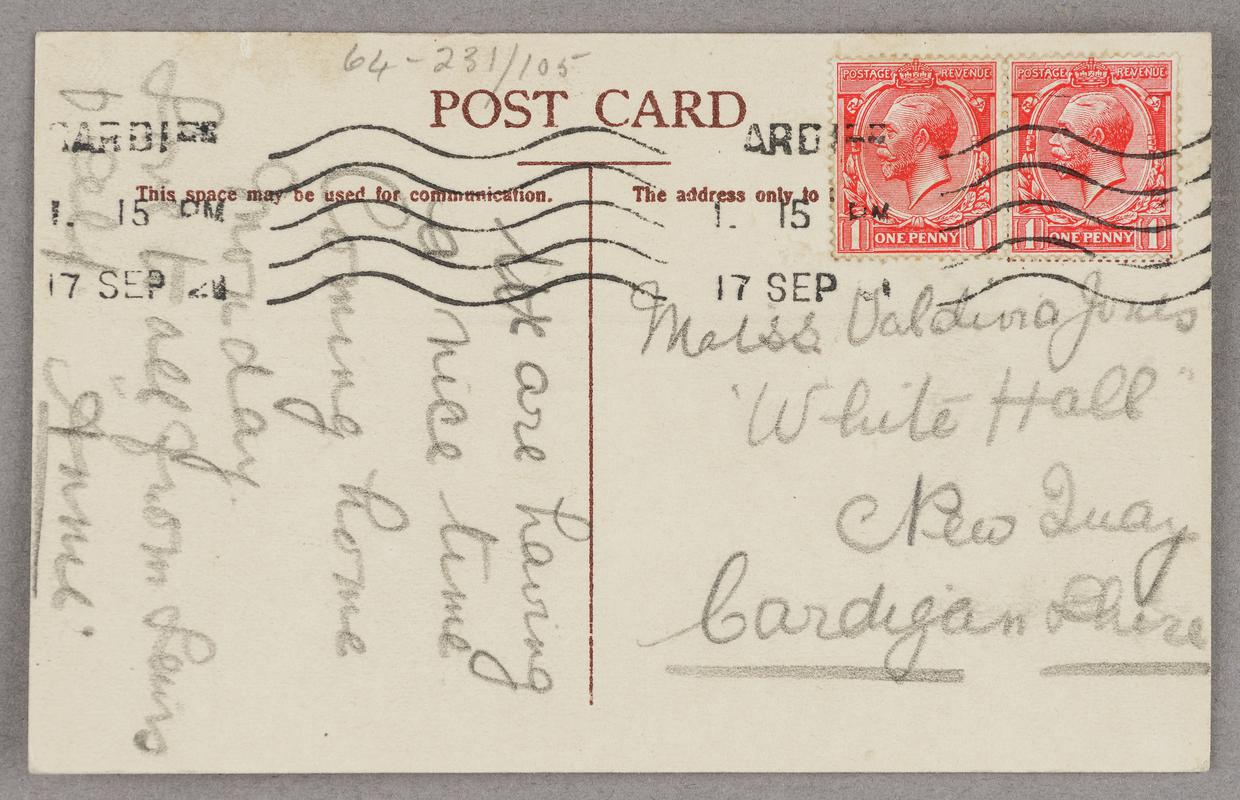 64-231/105
POST CARD
This space may be used for communication.
The address only to
POSTAGE REVENUE
ONE PENNY
1 1
POSTAGE REVENUE
ONE PENNY
1 1
CARDIFF
1. 15 PM
17 SEP 21
ARDIFF
1. 15 PM
17 SEP
We are having
a nice time
Coming home
on day.
love to all from Lewis
Annie
Meiss Valdivia Jones
"White Hall"
New Quay
Cardigan Shire